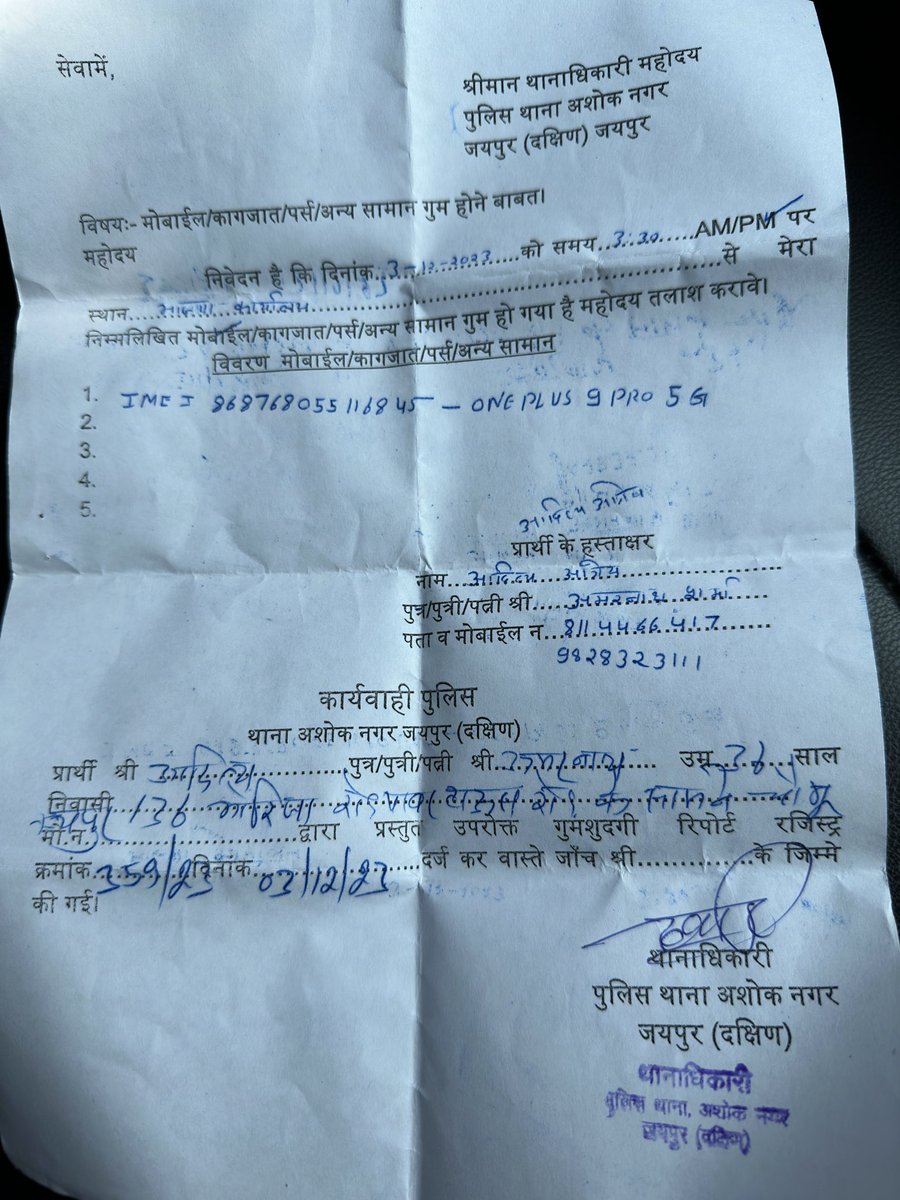 सेवामें,
श्रीमान थानाधिकारी महोदय
पुलिस थाना अशोक नगर
जयपुर (दक्षिण) जयपुर
विषयः- मोबाईल/कागजात/पर्स/अन्य सामान गुम होने बाबत।
महोदय
निवेदन है कि दिनांक..3-12-2023...को समय..3:30.....AM/PM पर
स्थान....भाजपा कार्यालय...से मेरा
निम्मलिखित मोबाईल/कागजात/पर्स/अन्य सामान गुम हो गया है महोदय तलाश करावे।
विवरण मोबाईल/कागजात/पर्स/अन्य सामान
1. IMEI 868768055116845 - ONEPLUS 9 PRO 5G
2.
3.
4.
5.
प्रार्थी के हस्ताक्षर
नाम...आदित्य
पुत्र/पुत्री/पत्नी श्री.....अमरनाथ शर्मा......
पता व मोबाईल न..8114466417.......
9828323111
कार्यवाही पुलिस
थाना अशोक नगर जयपुर (दक्षिण)
प्रार्थी श्री आदित्य............पुत्र/पुत्री/पत्नी श्री.अमरनाथ..... उम्र.36..साल
निवासी...136
जयपुर मो.न..................द्वारा प्रस्तुत उपरोक्त गुमशुदगी रिपोर्ट रजिस्ट्र
क्रमांक.359/23 दिनांक 03/12/23 दर्ज कर वास्ते जाँच श्री..............के जिम्मे
की गई।
थानाधिकारी
पुलिस थाना अशोक नगर
जयपुर (दक्षिण)
थानाधिकारी
पुलिस थाना, अशोक नगर
जयपुर (दक्षिण)